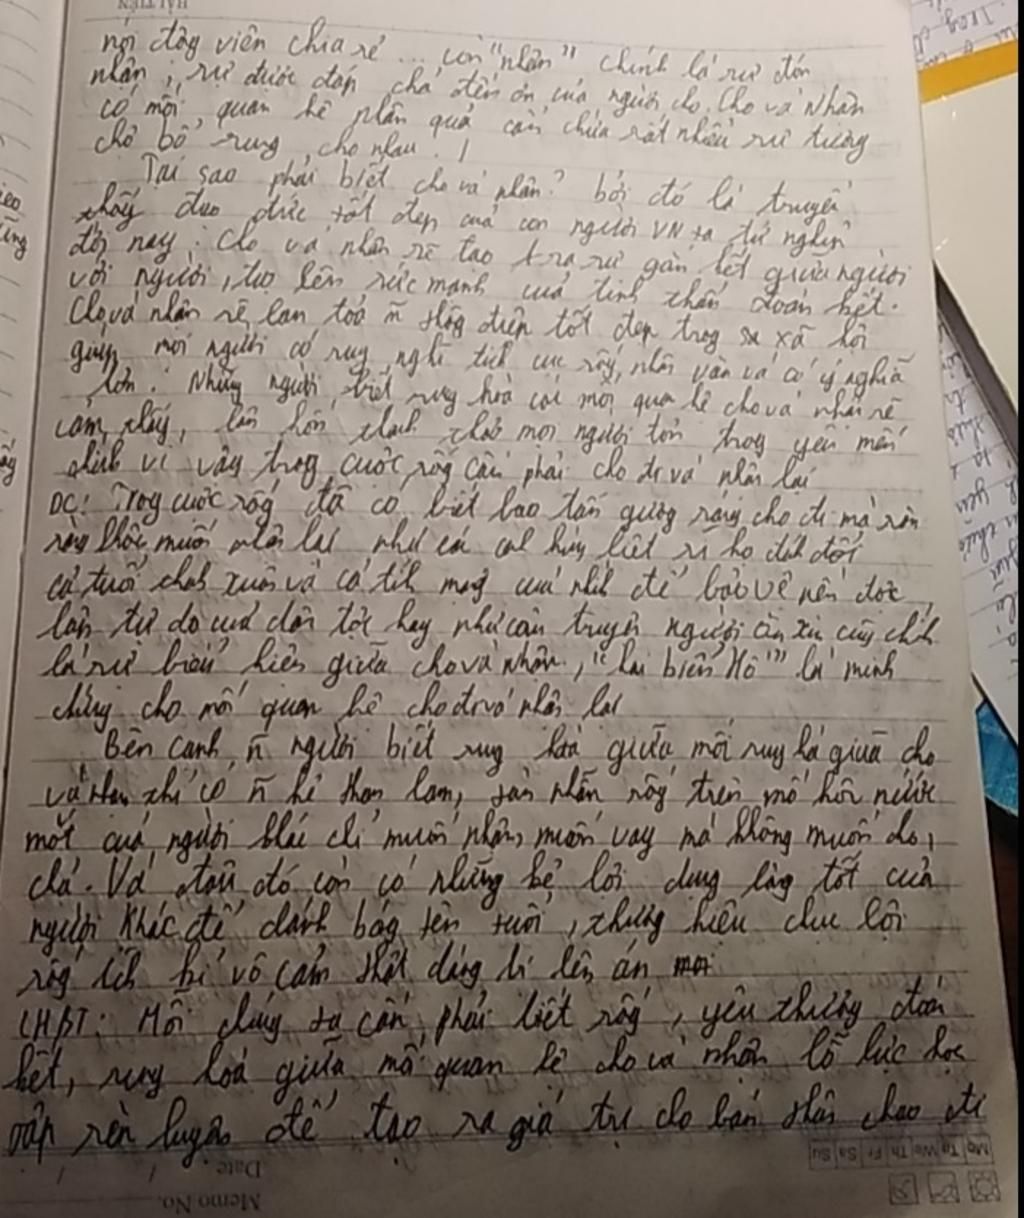 nơi động viên chia sẻ ... còn "nhân" chính là sự đón
nhận, sự được đáp chả đền ơn của người cho. Cho và Nhân
có mối quan hệ nhân quả còn chứa rất nhiều sự tương
chở bổ sung cho nhau. /
Tại sao phải biết cho và nhân? bởi đó là truyền
thống đạo đức tốt đẹp của con người VN ta từ nghìn
đời nay. Cho và nhân sẽ tạo ra sự gắn kết giữa người
với người, tạo lên sức mạnh của tinh thần đoàn kết.
Cho và nhân sẽ lan toả ñ thông điệp tốt đẹp trong xã hội
giúp mọi người có suy nghĩ tích cực sống nhân văn và có ý nghĩa
hơn. Những người biết rung hoà cái mối quan hệ cho và nhân sẽ
cảm thấy tâm hồn thanh thản mọi người tôn trọng yêu mến
chính vì vậy trong cuộc sống cần phải cho đi và nhân lại
DC: Trong cuộc sống đã có biết bao tấm gương sáng cho đi mà
không muốn nhân lại như các anh hùng liệt sĩ họ đánh đổi
cả tuổi thanh xuân và cả tính mạng của mình để bảo vệ nền độc
lập tự do của dân tộc hay như câu truyện người ăn xin cũng chính
là sự biểu hiện giữa cho và nhân, "hai biển Hồ" là minh
chứng cho mối quan hệ cho đi và nhân lại
Bên cạnh ñ người biết rung hoà giữa mối quan hệ giữa cho
và nhân thì có ñ kẻ tham lam, tàn nhẫn sống trên mồ hôi nước
mắt của người khác chỉ muốn nhận, muốn vay mà không muốn cho,
chả. Và đâu đó còn có những kẻ lợi dụng lòng tốt của
người khác để đánh bóng tên tuổi, thương hiệu chục lợi
sống ích kỉ vô cảm thật đáng bị lên án
LHBT: Mỗi chúng ta cần phải biết sống, yêu thương đoàn
kết, rung hoà giữa mối quan hệ cho và nhận lỗ lực học
tập rèn luyện để tạo ra giá trị cho bản thân chao đi
Mo Tu We Th Fr Sa Su
Date
Memo No.
HẢI TIẾN